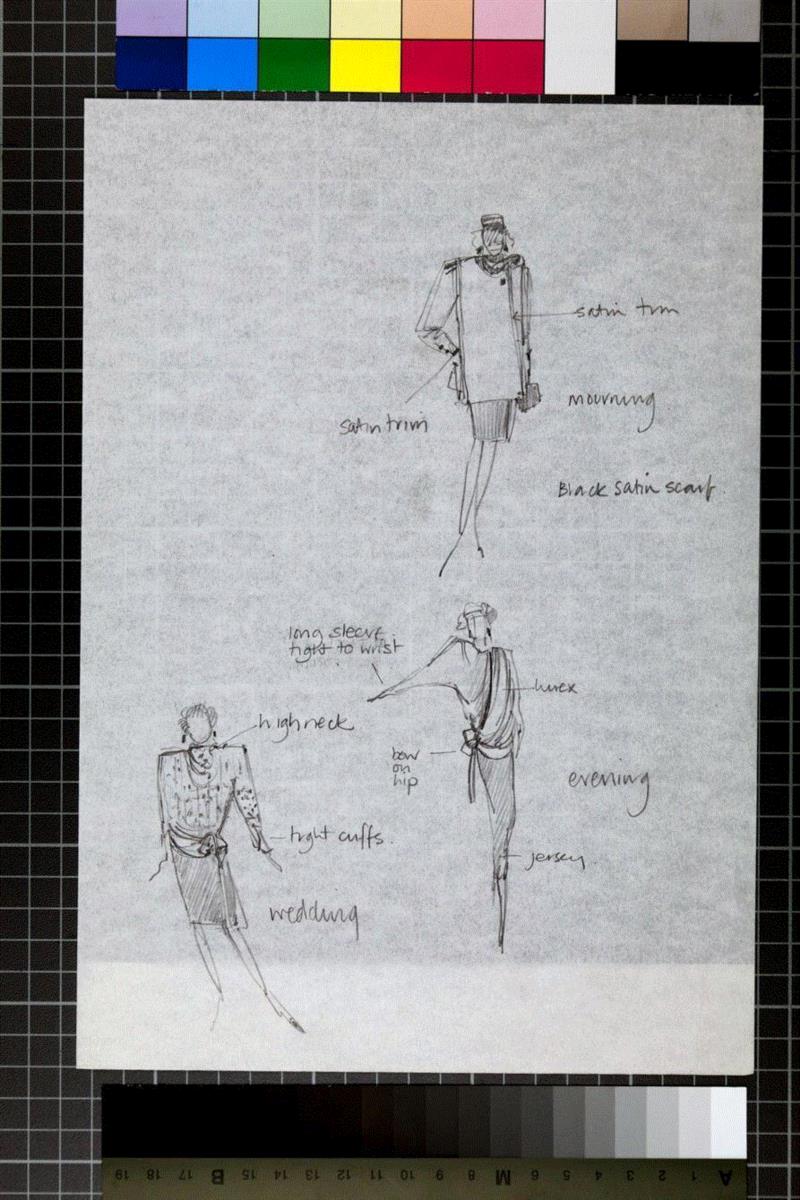 satin trim
satin trim
mourning
Black satin scarf
long sleeve
tight to wrist
lurex
high neck
bow
on
hip
evening
tight cuffs.
jersey
wedding
19 18 17 B 15 14 13 12 11 10 9 M 8 6 5 4 3 2 1 A